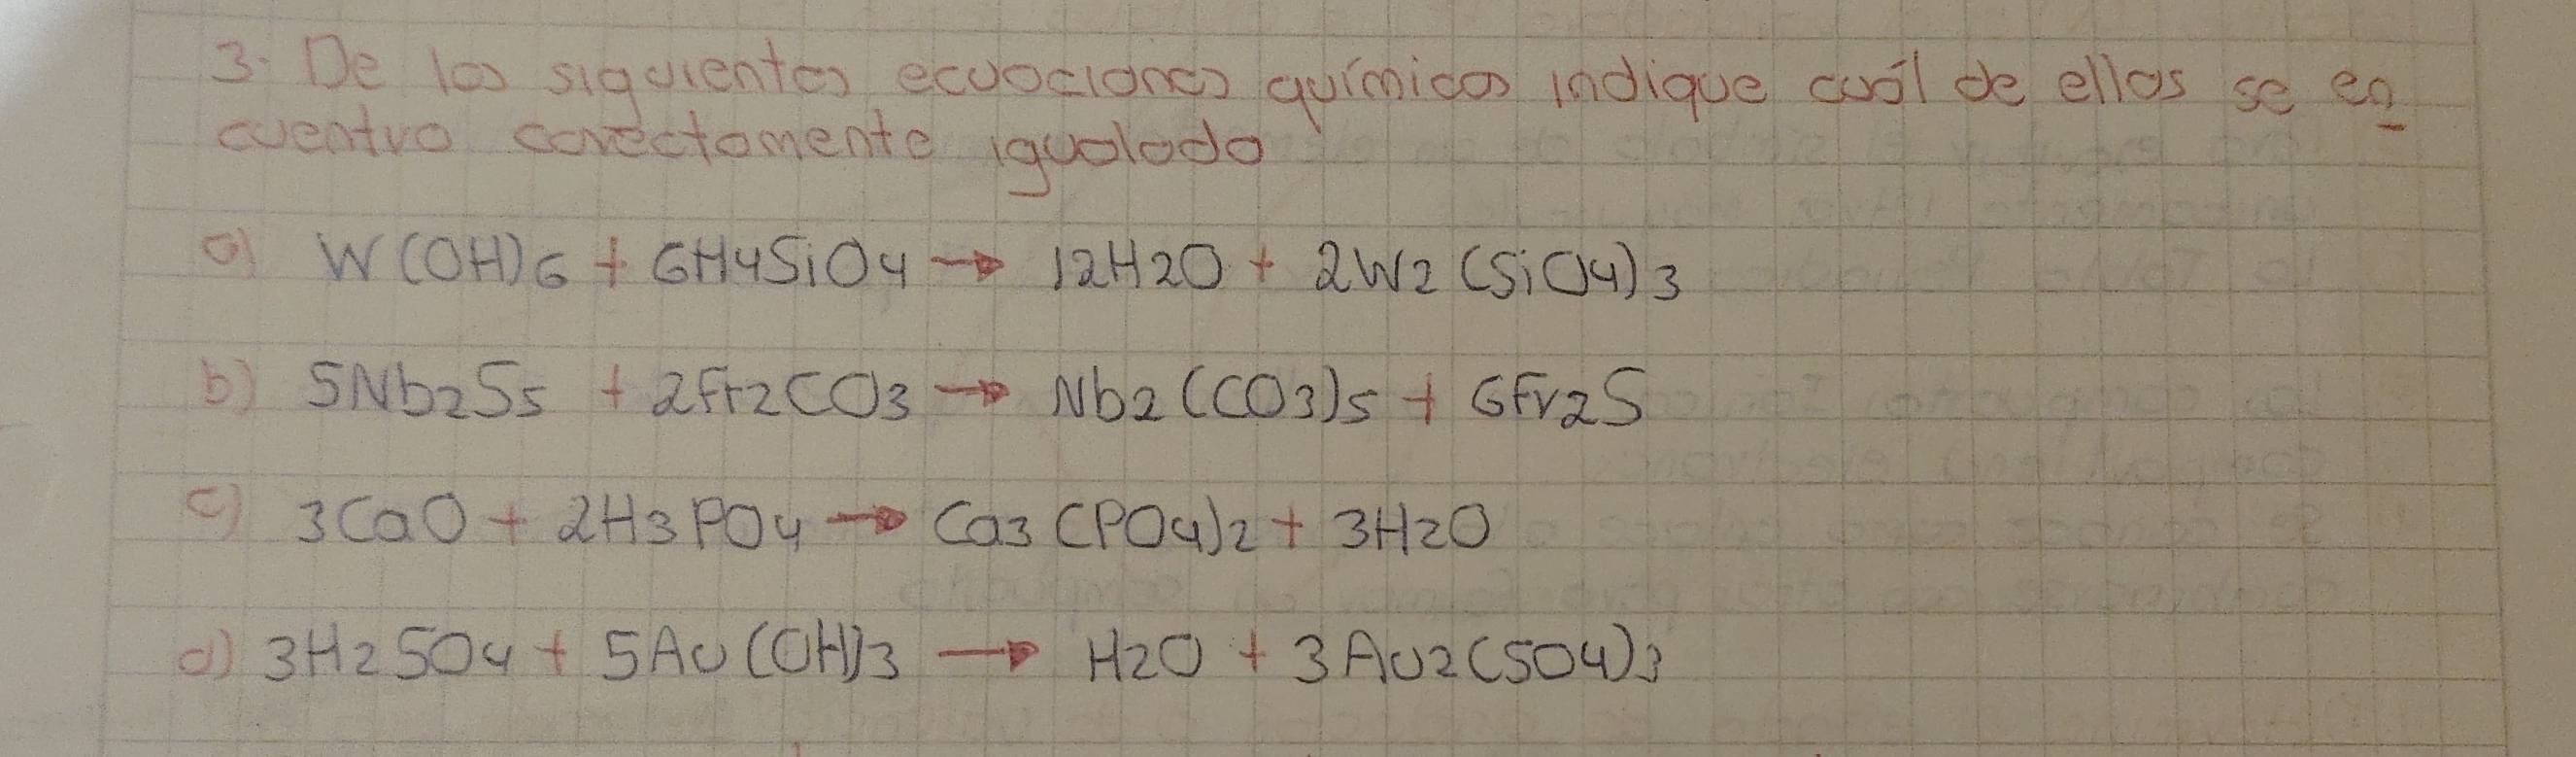 3. De las siguientes ecuaciones químicas indique cuál de ellas se en
cuentra correctamente igualada
a) W(OH)6 + 6H4SiO4 → 12H2O + 2W2(SiO4)3
b) 5Nb2S5 + 2Fr2CO3 → Nb2(CO3)5 + 6Fr2S
c) 3CaO + 2H3PO4 → Ca3(PO4)2 + 3H2O
d) 3H2SO4 + 5Au(OH)3 → H2O + 3Au2(SO4)3